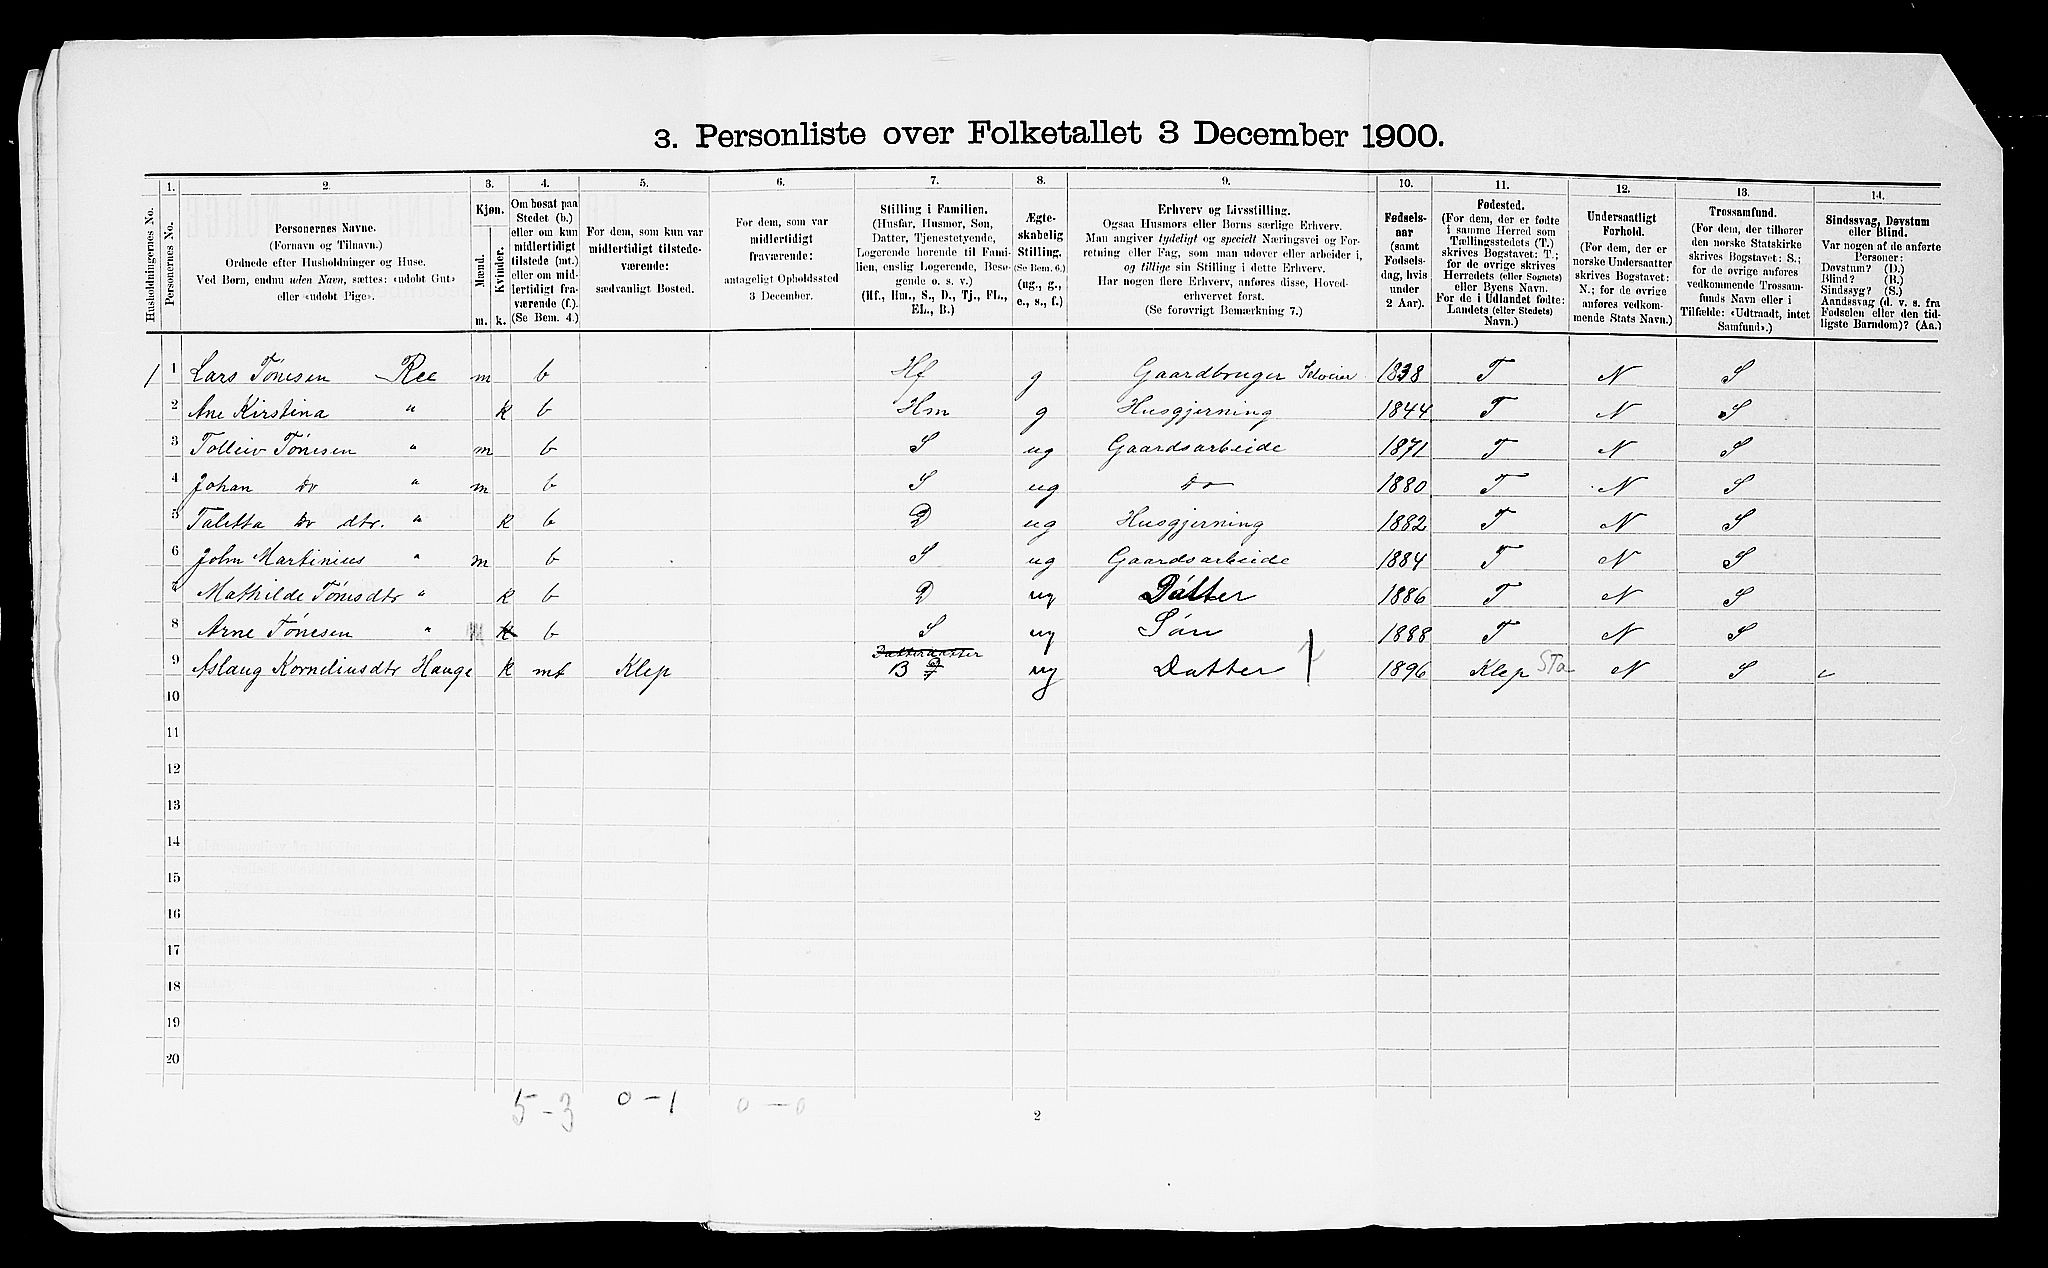 3. Personliste over Folketallet 3 December 1900.
Husholdningernes No.
1.
Personernes No.
2.
Personernes Navne.
(Fornavn og Tilnavn.)
Ordnede efter Husholdninger og Huse.
Ved Børn, endnu uden Navn, sættes: «udøbt Gut»
eller «udøbt Pige».
3.
Kjøn.
Mænd.
Kvinder.
m. k.
4.
Om bosat paa
Stedet (b.)
eller om kun
midlertidigt
tilstede (mt.)
eller om mid-
lertidigt fra-
værende (f.).
(Se Bem. 4.)
5.
For dem, som kun var
midlertidigt tilstede-
værende:
sædvanligt Bosted.
6.
For dem, som var
midlertidigt
fraværende:
antageligt Opholdssted
3 December.
7.
Stilling i Familien.
(Husfar, Husmor, Søn,
Datter, Tjenestetyende,
Logerende hørende til Fami-
lien, enslig Logerende, Besø-
gende o. s. v.)
(Hf., Hm., S., D., Tj., FL.,
EL., B.)
8.
Ægte-
skabelig
Stilling.
(Se Bem. 6.)
(ug., g.,
e., s., f.)
9.
Erhverv og Livsstilling.
Ogsaa Husmors eller Børns særlige Erhverv.
Man angiver tydeligt og specielt Næringsvei og For-
retning eller Fag, som man udøver eller arbeider i,
og tillige sin Stilling i dette Erhverv.
Har nogen flere Erhverv, anføres disse, Hoved-
erhvervet først.
(Se forøvrigt Bemærkning 7.)
10.
Fødsels-
aar
(samt
Fødsels-
dag, hvis
under
2 Aar).
11.
Fødested.
(For dem, der er fødte
i samme Herred som
Tællingsstedets (T.)
skrives Bogstavet: T.;
for de øvrige skrives
Herredets (eller Sognets)
eller Byens Navn.
For de i Udlandet fødte:
Landets (eller Stedets)
Navn.)
12.
Undersaatligt
Forhold.
(For dem, der er
norske Undersaatter
skrives Bogstavet:
N.; for de øvrige
anføres vedkom-
mende Stats Navn.)
13.
Trossamfund.
(For dem, der tilhører
den norske Statskirke
skrives Bogstavet: S.;
for de øvrige anføres
vedkommende Trossam-
funds Navn eller i
Tilfælde: «Udtraadt, intet
Samfund».)
14.
Sindssvag, Døvstum
eller Blind.
Var nogen af de anførte
Personer:
Døvstum? (D.)
Blind? (B.)
Sindssyg? (S.)
Aandssvag (d. v. s. fra
Fødselen eller den tid-
ligste Barndom)? (Aa.)
1 1 Lars Tønesen Ree m b Hf g Gaardbruger Selveier 1838 T N S
2 Ane Kirstina " k b Hm g Husgjerning 1844 T N S
3 Tolleiv Tønesen " m b S ug Gaardsarbeide 1871 T N S
4 Johan Do " m b S ug Do 1880 T N S
5 Taletta Do dtr. " k b D ug Husgjerning 1882 T N S
6 John Martinius " m b S ug Gaardsarbeide 1884 T N S
7 Mathilde Tønesdtr " k b D ug Datter 1886 T N S
8 Arne Tønesen " m k b S ug Søn 1888 T N S
9 Aslaug Korneliusdtr Hauge k mt Klep Datterdatter B ug Datter 1896 Klep Sta N S
10
11
12
13
14
15
16
17
18
19
20
5-3 0-1 0-0
2